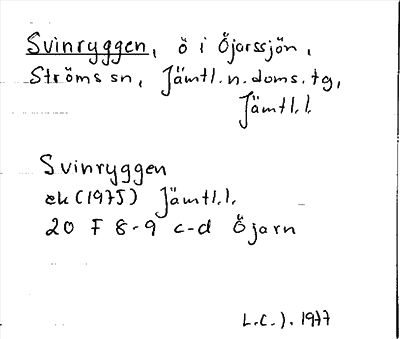 Svinryggen, ö i Öjarssjön,
Ströms sn, Jämtl.n.doms.tg,
Jämtl.l.
Svinryggen
ek (1975) Jämtl.l.
20 F 8-9 c-d Öjarn
L.C.J. 1977